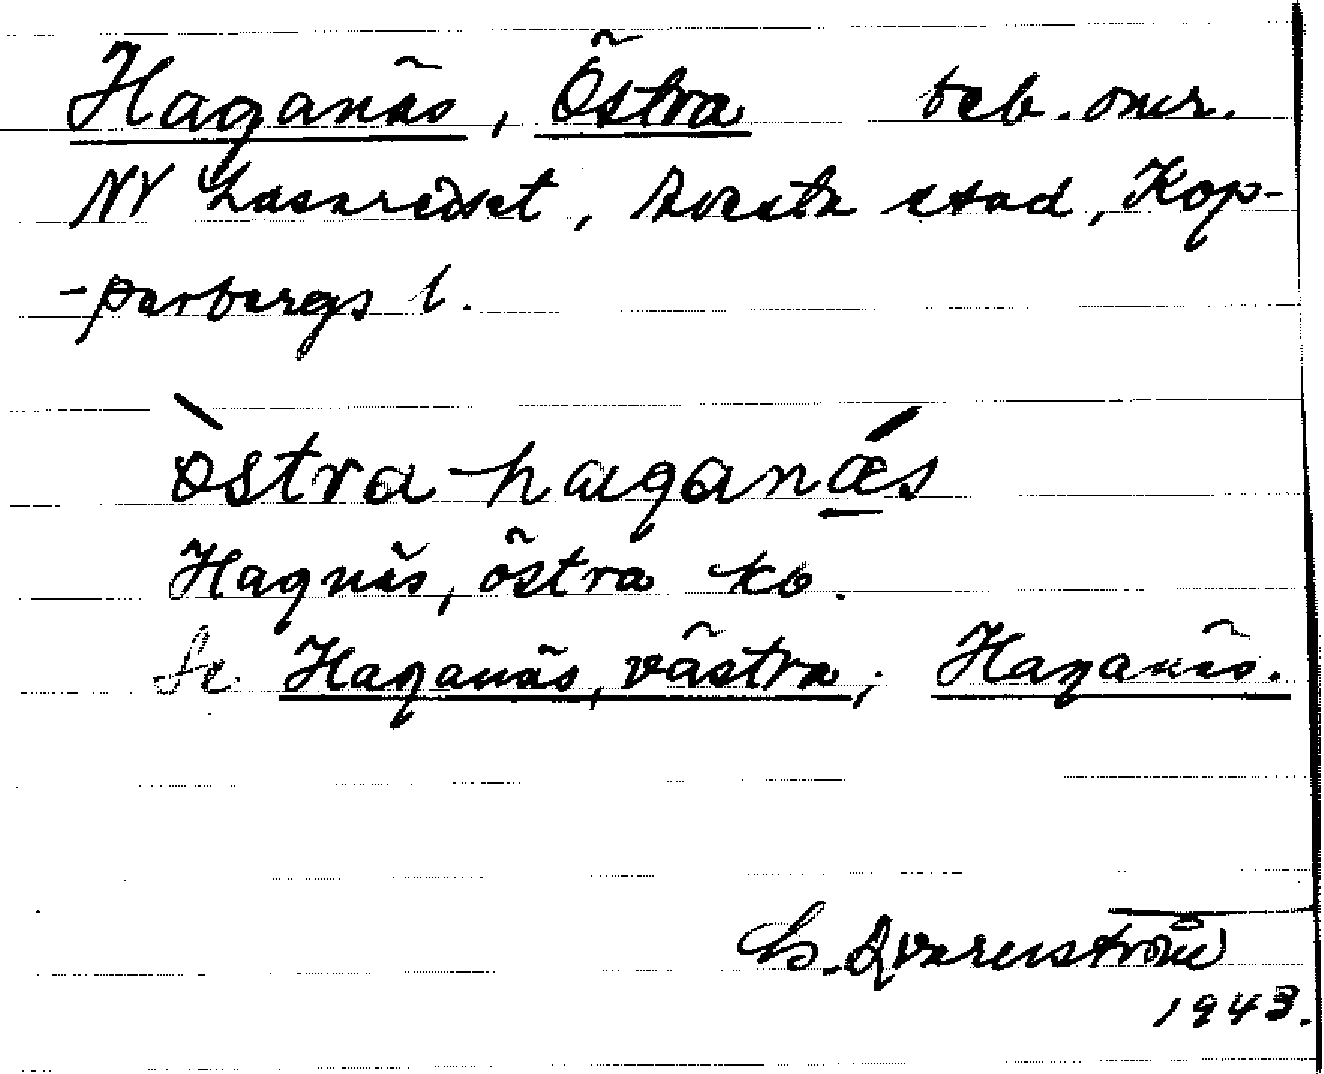 Haganäs, Östra beb. omr.
NV Lasarettet, Avesta stad, Kop-
-parbergs l.
òstra-haganǽs
Hagnäs, östra kb.
Se Haganäs, västra; Haganäs.
G. Qvarnström
1943.